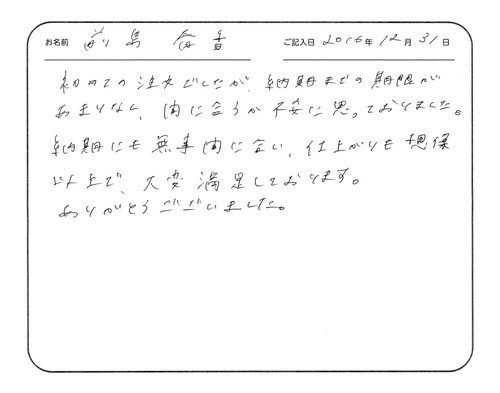 お名前 前島 ご記入日 2016年 12月 31日
初めての注文でしたが、納期までの期限が
あまりなく、間に合うか不安に思っておりました。
納期にも無事間に合い、仕上がりも想像
以上で、大変満足しております。
ありがとうございました。